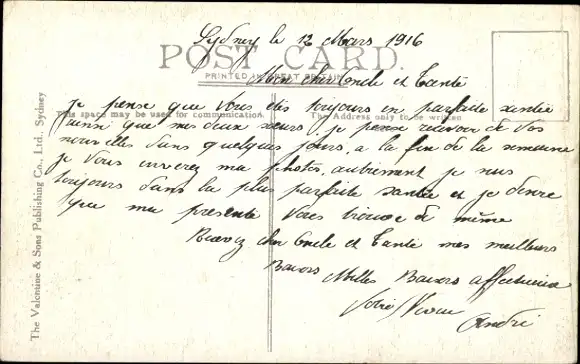 Sydney le 13 Mars 1916
POST CARD.
PRINTED IN GREAT BRITAIN
Mon cher Oncle et Tante
je pense que vous êtes toujours en parfaite santée
This space may be used for communication.
The Address only to be written
ainsi que mes deux sœurs, je pense recevoir de vos
nouvelles dans quelques jours, a la fin de la semaine
je vous enverez ma photo, autrement je suis
toujours dans la plus parfaite santée et je désire
que ma presente vous trouve de même
Recevez cher Oncle et Tante mes meilleurs
Baisers Milles Baisers affectueux
Votre Neveu
André
The Valentine & Sons Publishing Co., Ltd., Sydney